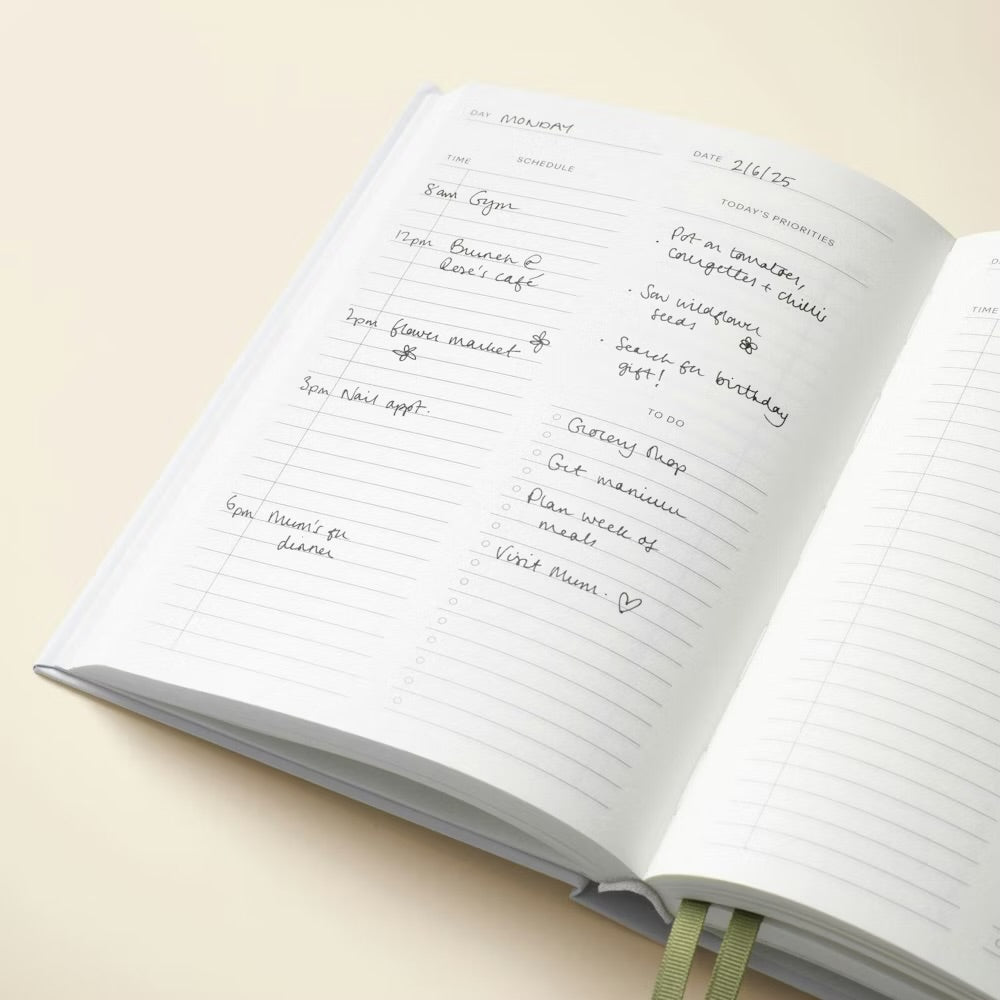 DAY MONDAY
DATE 2/6/25
TIME SCHEDULE
8am Gym
12pm Brunch @
Rose's café
2pm flower market
3pm Nail appt.
6pm Mum's for
dinner
TODAY'S PRIORITIES
• Pot on tomatoes,
courgettes + chillis
• Sow wildflower
seeds
• Search for birthday
gift!
TO DO
Grocery shop
Get manicure
Plan week of
meals
Visit Mum.
TIME